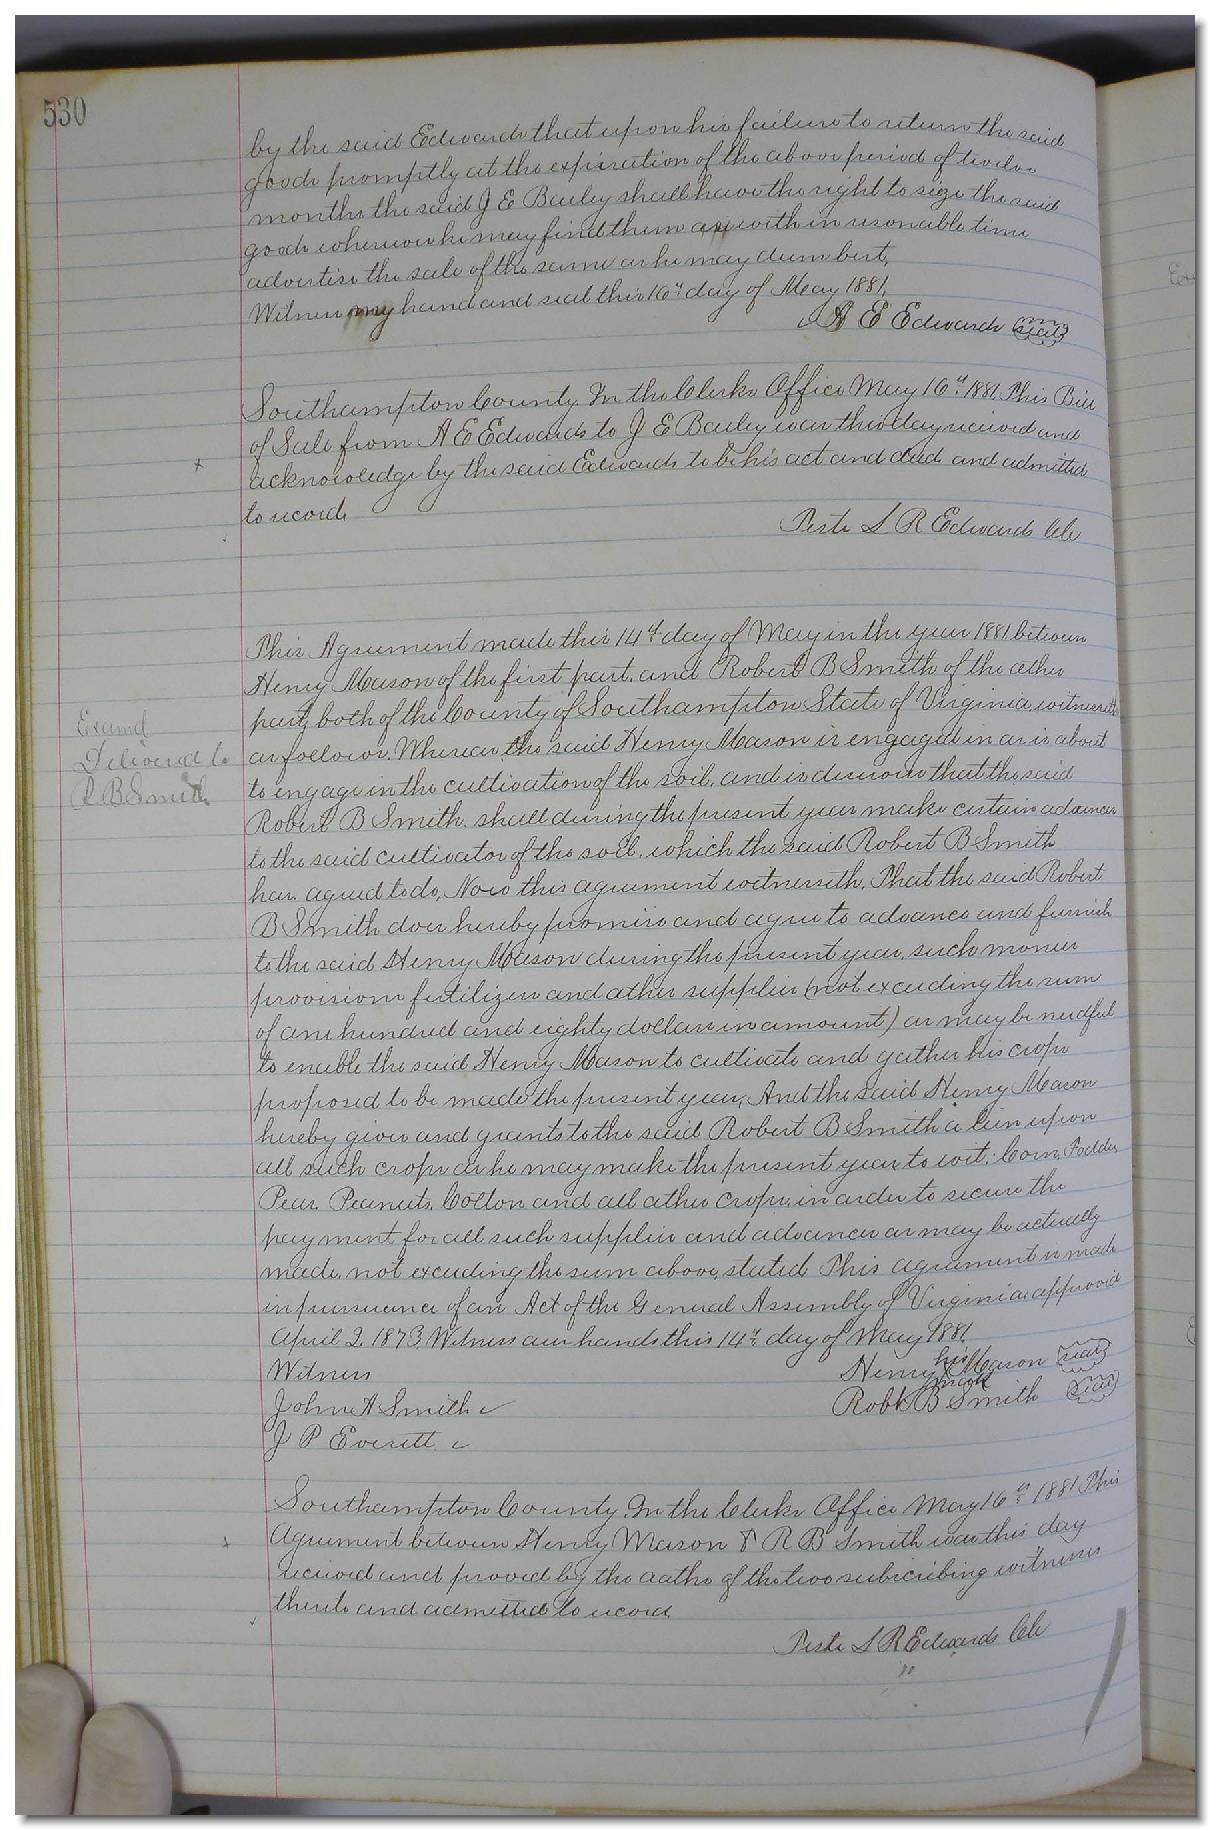 530
by the said Edwards that upon his failure to return the said
goods promptly at the expiration of the above period of twelve
months the said J E Bauley shall have the right to seize the said
goods wherever he may find them and with in resonable time
advertise the sale of the same as he may deem best,
Witness my hand and seal this 16th day of May 1881,
A E Edwards seal
Southampton County In the Clerks Office May 16th 1881. This Bill
of Sale from A E Edwards to J E Bauley was this day received and
acknowledge by the said Edwards to be his act and deed and admitted
to record.
Teste L R Edwards Clk
This Agreement made this 14th day of May in the year 1881 between
Henry Mason of the first part, and Robert B Smith of the other
part, both of the County of Southampton State of Virginia, witnesseth
as follows. Whereas the said Henry Mason is engaged in or is about
to engage in the cultivation of the soil, and is desirous that the said
Robert B Smith shall during the present year make certain advances
to the said cultivator of the soil. which the said Robert B Smith
has agreed to do, Now this agreement witnesseth, That the said Robert
B Smith does hereby promise and agree to advance and furnish
to the said Henry Mason during the present year, such monies
provisions fertilizers and other supplies (not exceeding the sum
of one hundred and eighty dollars in amount) as may be needful
to enable the said Henry Mason to cultivate and gather his crops
proposed to be made the present year, And the said Henry Mason
hereby gives and grants to the said Robert B Smith a lien upon
all such crops as he may make the present year to wit: Corn, Fodder
Peas, Peanuts, Cotton and all other crops, in order to secure the
payment for all such supplies and advances as may be actually
made, not exceeding the sum above, stated This agreement is made
in pursuance of an Act of the General Assembly of Virginia approved
April 2, 1873, Witness our hands this 14th day of May 1881
Witness
Henry his Mason seal
mark
John A Smith
Robt B Smith seal
J P Everett
Examd
Delivered to
R B Smith
Southampton County. In the Clerks Office May 16th 1881 This
Agreement between Henry Mason & R B Smith was this day
received and proved by the oaths of the two subscribing witnesses
thereto and admitted to record
Teste L R Edwards Clk